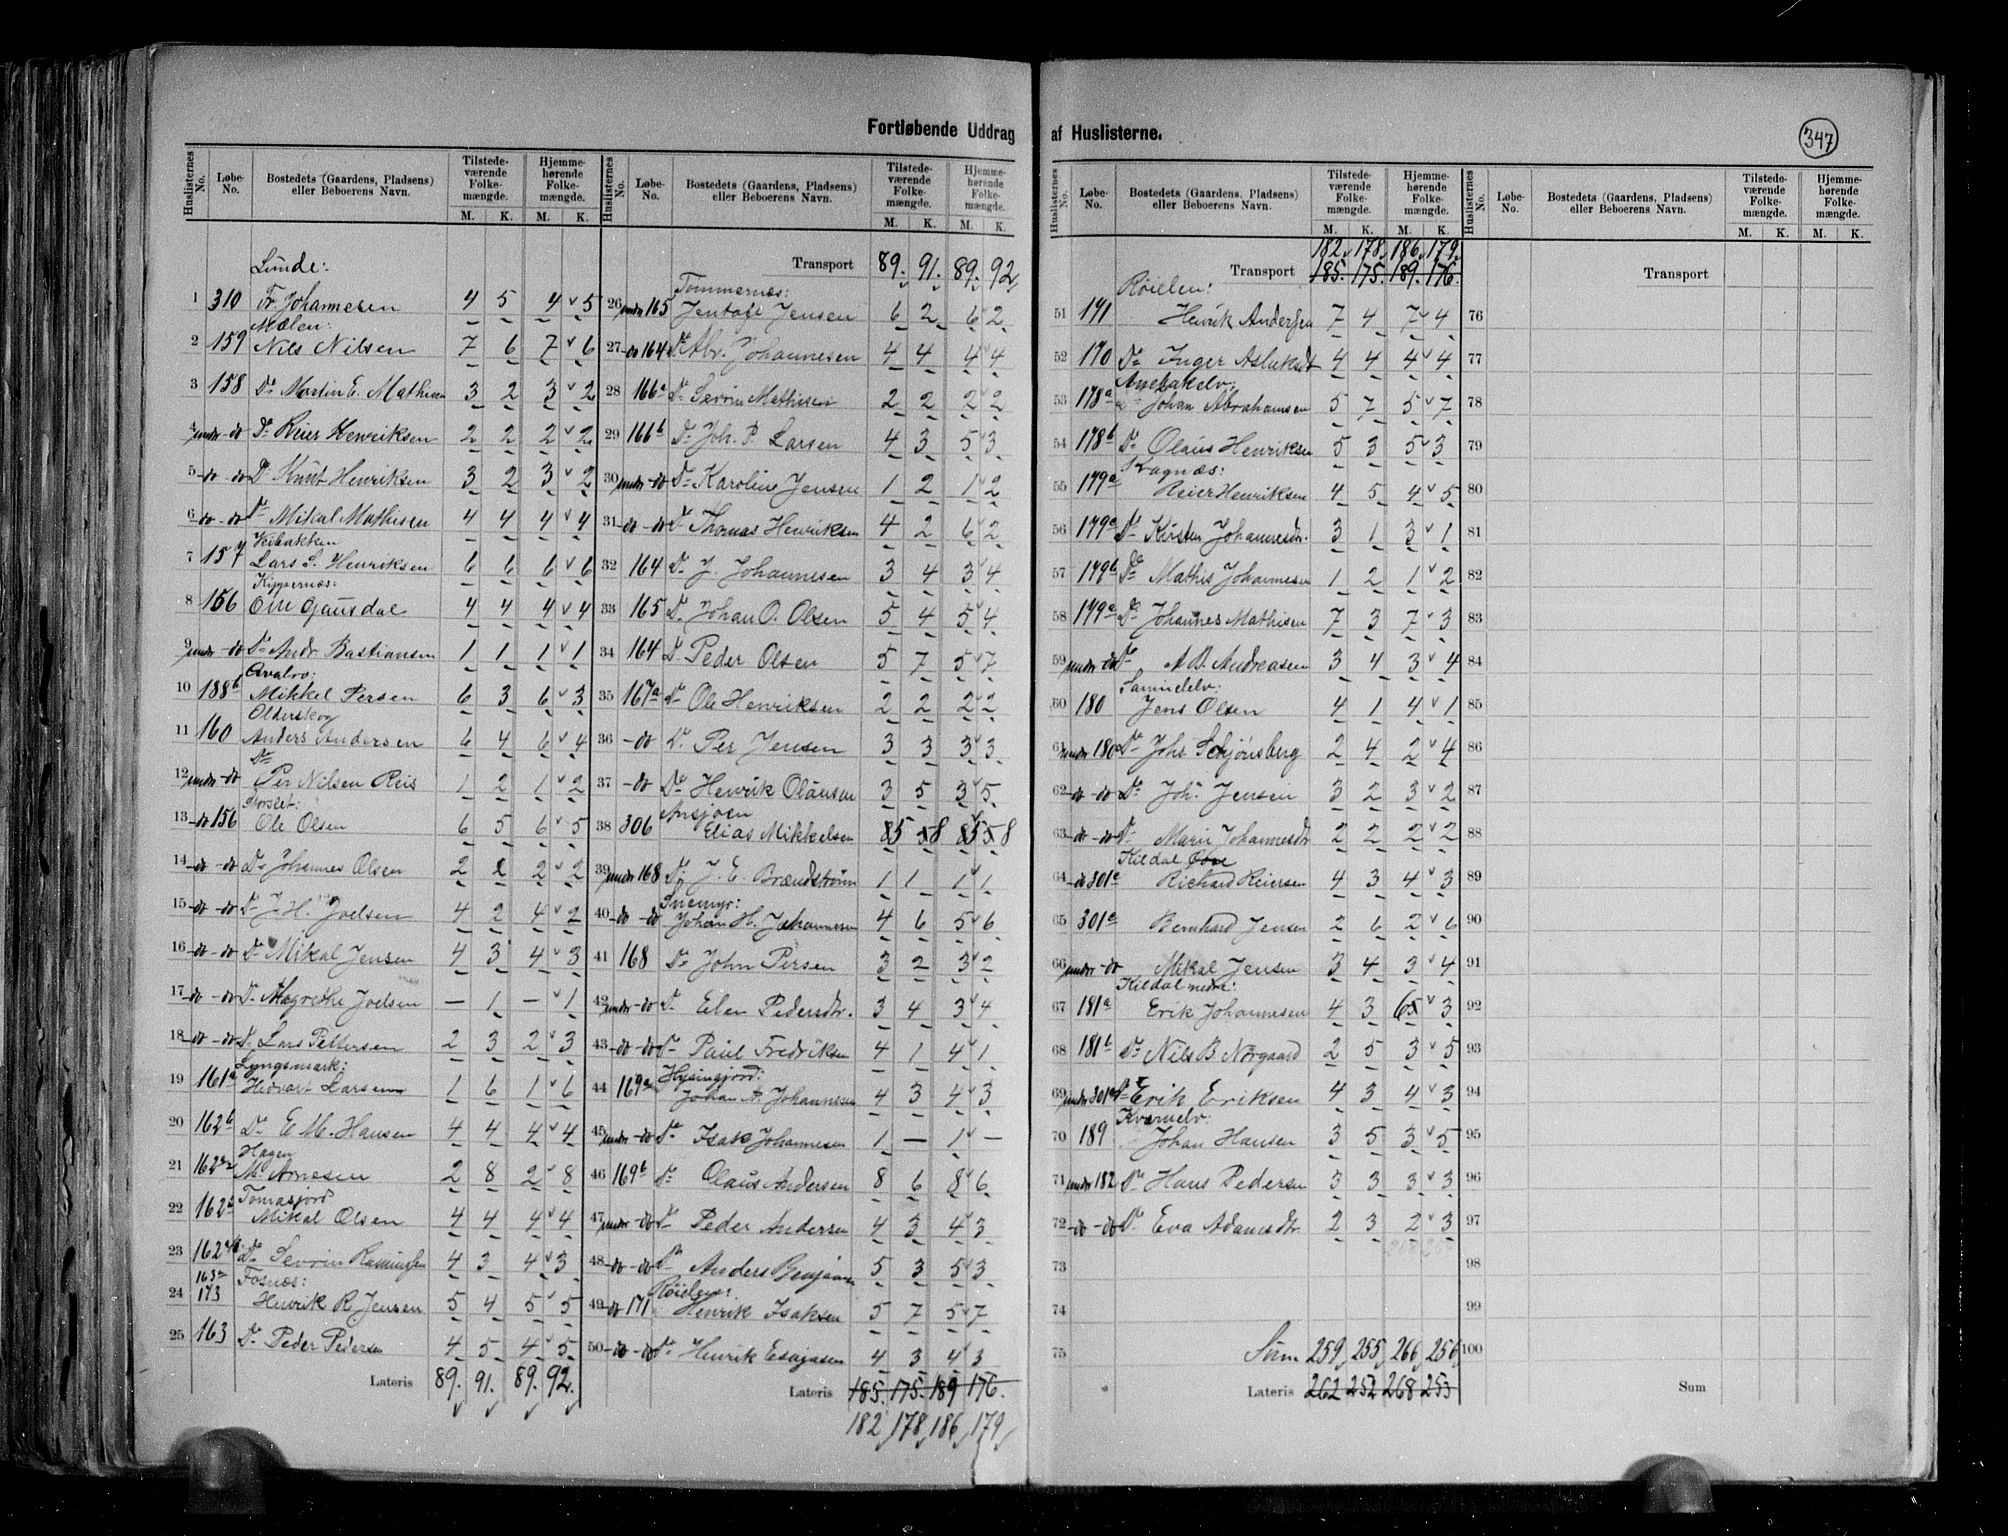 Fortløbende Uddrag af Huslisterne.
347
Huslisternes No. Løbe-No. Bostedets (Gaardens, Pladsens) eller Beboerens Navn. Tilstedeværende Folkemængde. Hjemmehørende Folkemængde.
M. K. M. K.
Lunde:
1 310 Fr. Johannesen 4 5 4 5
Mælen:
2 159 Nils Nilsen 7 6 7 6
3 158 Do Martin E. Mathisen 3 2 3 2
4 under do Do Reier Henriksen 2 2 2 2
5 do do Do Knut Henriksen 3 2 3 2
6 do do Do Mikal Mathisen 4 4 4 4
7 157 Lars S. Henriksen 6 6 6 6
Kippernæs:
8 156 Ole Gausdal 4 4 4 4
9 under do Do Andr Bastiansen 1 1 1 1
10 188b Mikkel Persen 6 3 6 3
Olderskog
11 160 Anders Andersen 6 4 6 4
Do
12 under do Per Nilsen Reis 1 2 1 2
Storslet:
13 do 156 Ole Olsen 6 5 6 5
14 do do Do Johannes Olsen 2 2 2 2
15 do do Do J. H. Joelsen 4 2 4 2
16 do do Do Mikal Jensen 4 3 4 3
17 do do Do Magrethe Joelsen – 1 – 1
18 do do Do Lars Pettersen 2 3 2 3
Lyngsmark:
19 161a Hedvart Larsen 1 6 1 6
20 162b Do E M. Hansen 4 4 4 4
Hagen
21 162 M. Arnesen 2 8 2 8
Tomasjord
22 162 Mikal Olsen 4 4 4 4
23 162 Do Sevrin Rasmussen 4 3 4 3
163a Fosnæs:
24 173 Henrik R. Jensen 5 4 5 5
25 163 Do Peder Pedersen 4 5 4 5
Lateris 89. 91. 89. 92.
Huslisternes No. Løbe-No. Bostedets (Gaardens, Pladsens) eller Beboerens Navn. Tilstedeværende Folkemængde. Hjemmehørende Folkemængde.
M. K. M. K.
Transport 89. 91. 89. 92
Tommernæs:
26 under 165 Jentoft Jensen 6 2 6 2
27 do 164 Do Abr. Johannesen 4 4 4 4
28 166a Do Sevrin Mathisen 2 2 2 2
29 166b Do Joh. P. Larsen 4 3 5 3
30 under do Do Karoline Jensen 1 2 1 2
31 do do Do Thomas Henriksen 4 2 6 2
32 164 Do J. Johannesen 3 4 3 4
33 165 Do Johan O. Olsen 5 4 5 4
34 164 Do Peder Olsen 5 7 5 7
35 167a Do Ole Henriksen 2 2 2 2
36 do Do Per Jensen 3 3 3 3
37 do Do Henrik Olausen 3 5 3 5
38 306 Elias Mikkelsen 85 58 85 58
39 under 168 Do J. E. Brændstrøm 1 1 1 1
Snemyr:
40 do do Johan H. Johannesen 4 6 5 6
41 168 Do John Persen 3 2 3 2
42 under do Do Elen Pedersdtr. 3 4 3 4
43 do do Do Paul Fredriksen 4 1 4 1
Hysingjord:
44 169a Johan A. Johannesen 4 3 4 3
45 under do Do Isak Johannesen 1 – 1 –
46 169b Do Olaus Andersen 8 6 8 6
47 under do Do Peder Andersen 4 3 4 3
48 do do Do Anders Benjamin 5 3 5 3
49 do 171 Henrik Isaksen 5 7 5 7
50 do do Do Henrik Esajasen 4 3 4 3
Lateris 185. 175. 189 176.
182 178 186 179
Huslisternes No. Løbe-No. Bostedets (Gaardens, Pladsens) eller Beboerens Navn. Tilstedeværende Folkemængde. Hjemmehørende Folkemængde.
M. K. M. K.
182 178 186 179
Transport 185. 175. 189. 176.
Røielen:
51 171 Henrik Andersen 7 4 7 4
52 170 Do Inger Aslaksdt 4 4 4 4
53 178a Johan Abrahamsen 5 7 5 7
54 178b Do Olaus Henriksen 5 3 5 3
Kagnæs:
55 179a Reier Henriksen 4 5 4 5
56 179a Do Kirsten Johannesdr. 3 1 3 1
57 179b Do Mathis Johannesen 1 2 1 2
58 179a Do Johannes Mathisen 7 3 7 3
59 under do Do A B. Andreasen 3 4 3 4
60 180 Jens Olsen 4 1 4 1
61 under 180 Do Johs Schjønsberg 2 4 2 4
62 do do Do Joh. Jensen 3 2 3 2
63 do do Do Marie Johannesdt 2 2 2 2
Kildal Øvre
64 do 301a Richard Reiersen 4 3 4 3
65 301a Bernhard Jensen 2 6 2 6
66 under do Mikal Jensen 3 4 3 4
Kildal nedre:
67 181a Erik Johannesen 4 3 65 3
68 181b Do Nils B Nørgaard 2 5 3 5
69 under 301a Do Erik Eriksen 4 3 4 3
Kvænelv:
70 189 Johan Hansen 3 5 3 5
71 under 182 Do Hans Pedersen 3 3 3 3
72 do do Do Eva Adamsdtr. 2 3 2 3
73
74
75 Sum 259 255 266 256
Lateris 262 252 268 253
Huslisternes No. Løbe-No. Bostedets (Gaardens, Pladsens) eller Beboerens Navn. Tilstedeværende Folkemængde. Hjemmehørende Folkemængde.
M. K. M. K.
Transport
76
77
78
79
80
81
82
83
84
85
86
87
88
89
90
91
92
93
94
95
96
97
98
99
100
Sum